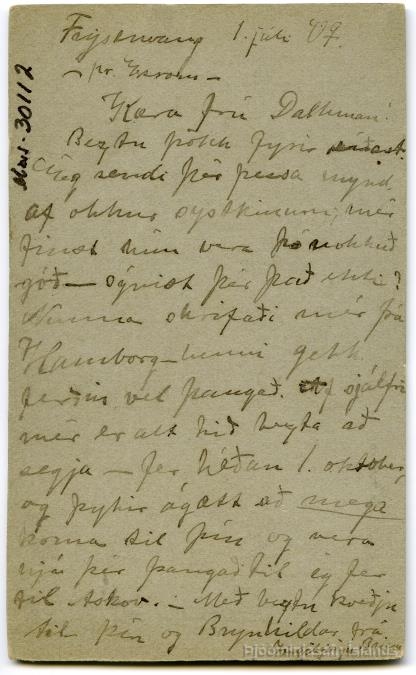 Frysenvang 1. júli '09.
– pr. Esrom –
Mms. 30112
Kæra frú Dalhman!
Beztu þökk fyrir síðast.
Ég sendi þér þessa mynd
af okkur systkinum; mér
finst hún vera nokkuð
góð – sýnist þér það ekki?
Nunna skrifaði mér frá
Hamborg – henni gekk
ferðin vel þangað. Af sjálfri
mér er alt hið bezta að
segja – fer héðan 1. október,
og þykir ágætt að mega
koma til þín og vera
hjá þér þangað til ég fer
til Askov. – Með beztu kveðju
til þín og Brynhildar, frá
Þjóðminjasafn Íslands